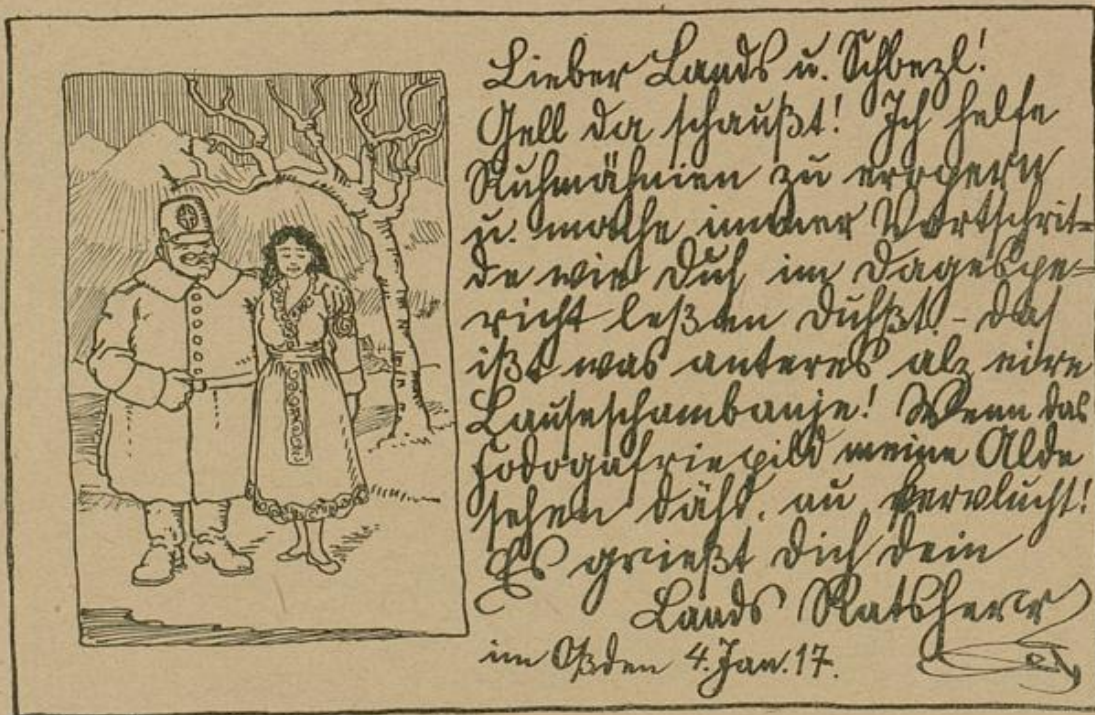 Lieber Lands u. Schbezl!
Gell da schaußt! Ich helfe
Ruhmähnien zu erropern
u. mache immer Vortschrit=
de wie Duh im Dagesspe=
richt leßen duhßt. – Das
ißt was anteres alz eire
Lauseschambanje! Wenn das
Fodogafriepild meine Alde
sehen dähd, au vervlucht!
Es grießt Dich Dein
Lands Ratsherr
im Oßden 4. Jan. 17.